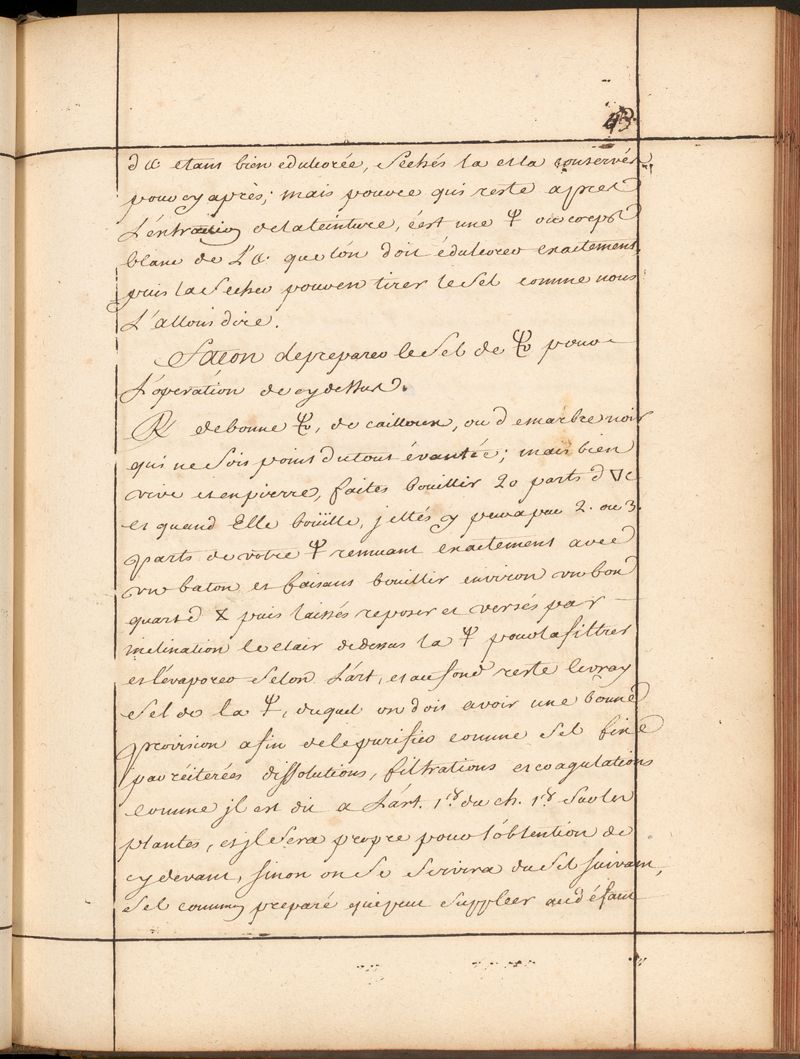 43.
d'☾ etant bien edulcorée, Sechés la et la conservés
pour cy après; mais pource qui reste apres
L'extraction de la teinture, c'est une 🜍 ou corps
blanc de L'☾ que l'on doit édulcorer exactement,
puis la Secher pour en tirer le Sel comme nous
L'allons dire.
Facon de preparer le Sel de pour
L'operation de cy dessus.
℞ de bonne , de cailloux, ou de marbre noir
qui ne Sois point du tout évantée; mais bien
vive et en pierre, faites bouillir 20 parts d'🜄
et quand Elle boüille, jettés y peu a peu 2. ou 3.
parts de votre remuant exactement avec
un baton et faisant bouillir environ un bon
quart d' puis laissés reposer et versés par
inclination le clair de dessus la pour la filtrer
et l'évaporer Selon L'art, et au fond reste le vray
Sel de la , duquel on dois avoir une bonne
provision afin de le purifier comme Sel fixe
par réiterées dissolutions, filtrations et coagulations
comme jl est dit a L'art. 1.er du ch. 1.er Sur les
plantes, et jl Sera propre pour l'obtention de
cy devant, sinon on Se Servira du Sel suivant,
Sel commun preparé qui peut Suppleer au défaut